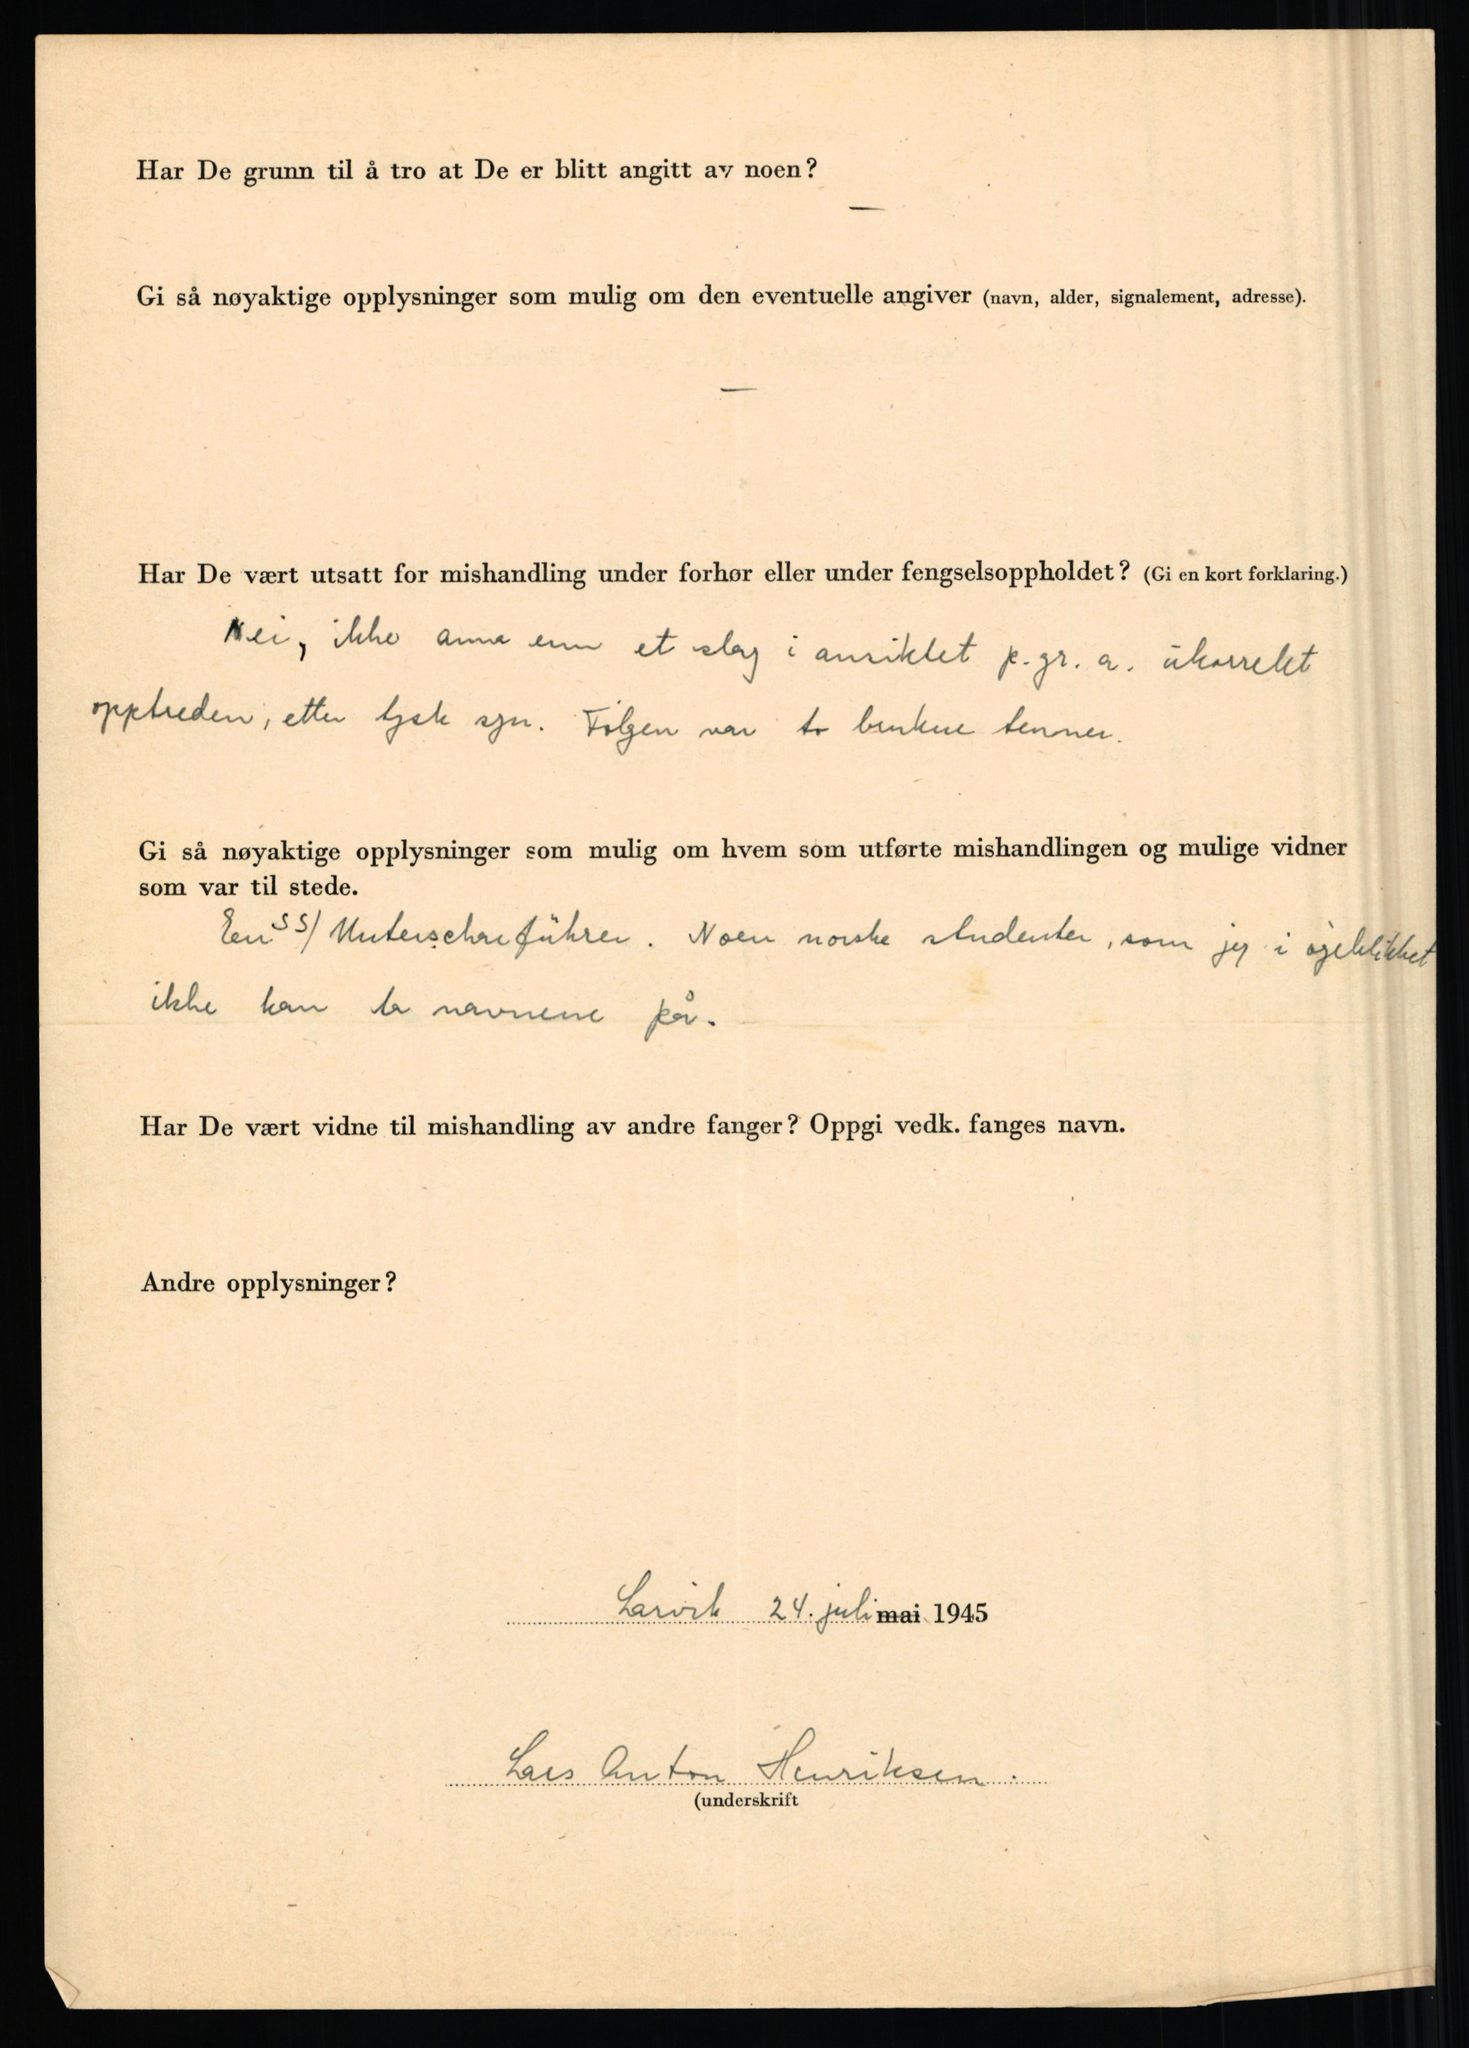 Har De grunn til å tro at De er blitt angitt av noen?
—
Gi så nøyaktige opplysninger som mulig om den eventuelle angiver (navn, alder, signalement, adresse).
—
Har De vært utsatt for mishandling under forhør eller under fengselsoppholdet? (Gi en kort forklaring.)
Nei, ikke anna enn et slag i ansiktet p.gr.a. ukorrekt
opptreden, etter tysk syn. Følgen var to brukne tenner.
Gi så nøyaktige opplysninger som mulig om hvem som utførte mishandlingen og mulige vidner
som var til stede.
En SS/ Unterscharführer. Noen norske studenter, som jeg i øyeblikket
ikke kan ta navnene på.
Har De vært vidne til mishandling av andre fanger? Oppgi vedk. fanges navn.
Andre opplysninger?
Larvik 24. juli mai 1945
Lars Anton Henriksen.
(underskrift